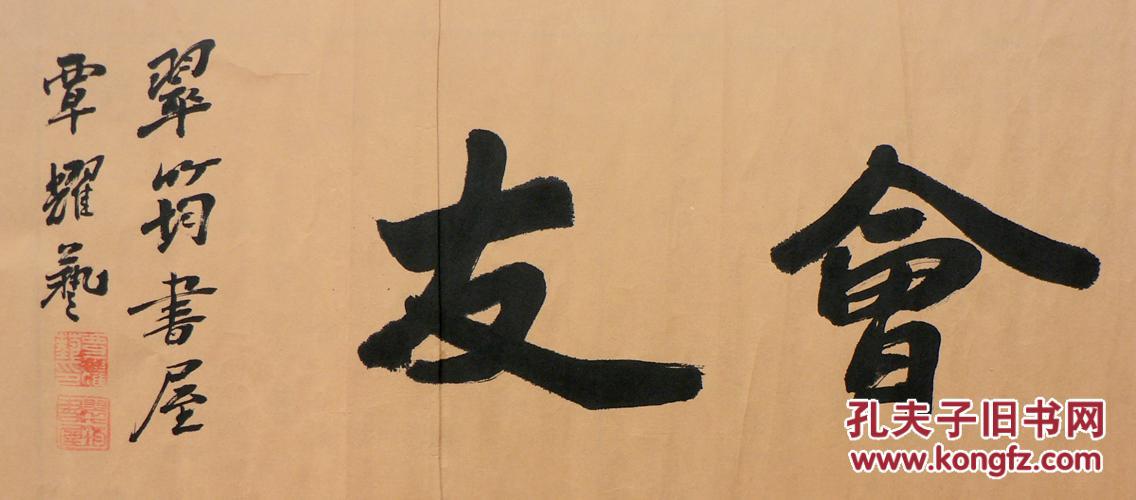 會友
翠筠書屋
覃耀藝
孔夫子旧书网
www.kongfz.com